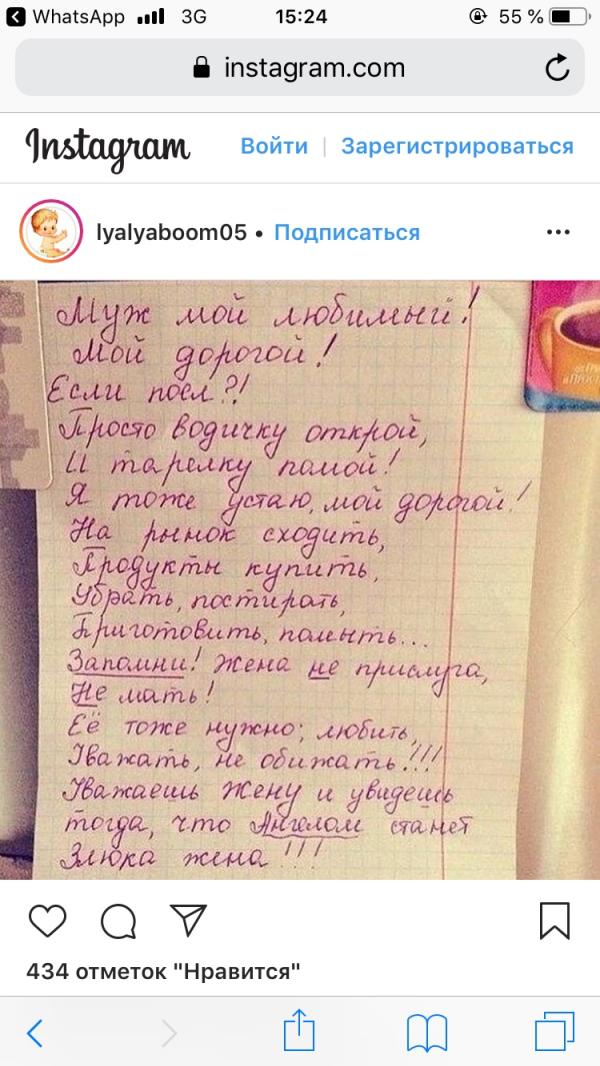 WhatsApp 3G 15:24 55 %
instagram.com
Instagram Войти | Зарегистрироваться
lyalyaboom05 • Подписаться
Муж мой любимый!
Мой дорогой!
Если поел?!
Просто водичку открой,
И тарелку помой!
Я тоже устаю, мой дорогой!
На рынок сходить,
Продукты купить,
Убрать, постирать,
Приготовить, помыть...
Запомни! Жена не прислуга,
Не мать!
Её тоже нужно; любить,
Уважать, не обижать!!!
Уважаешь жену и увидешь
тогда, что Ангелом станет
Злюка жена!!!
434 отметок "Нравится"